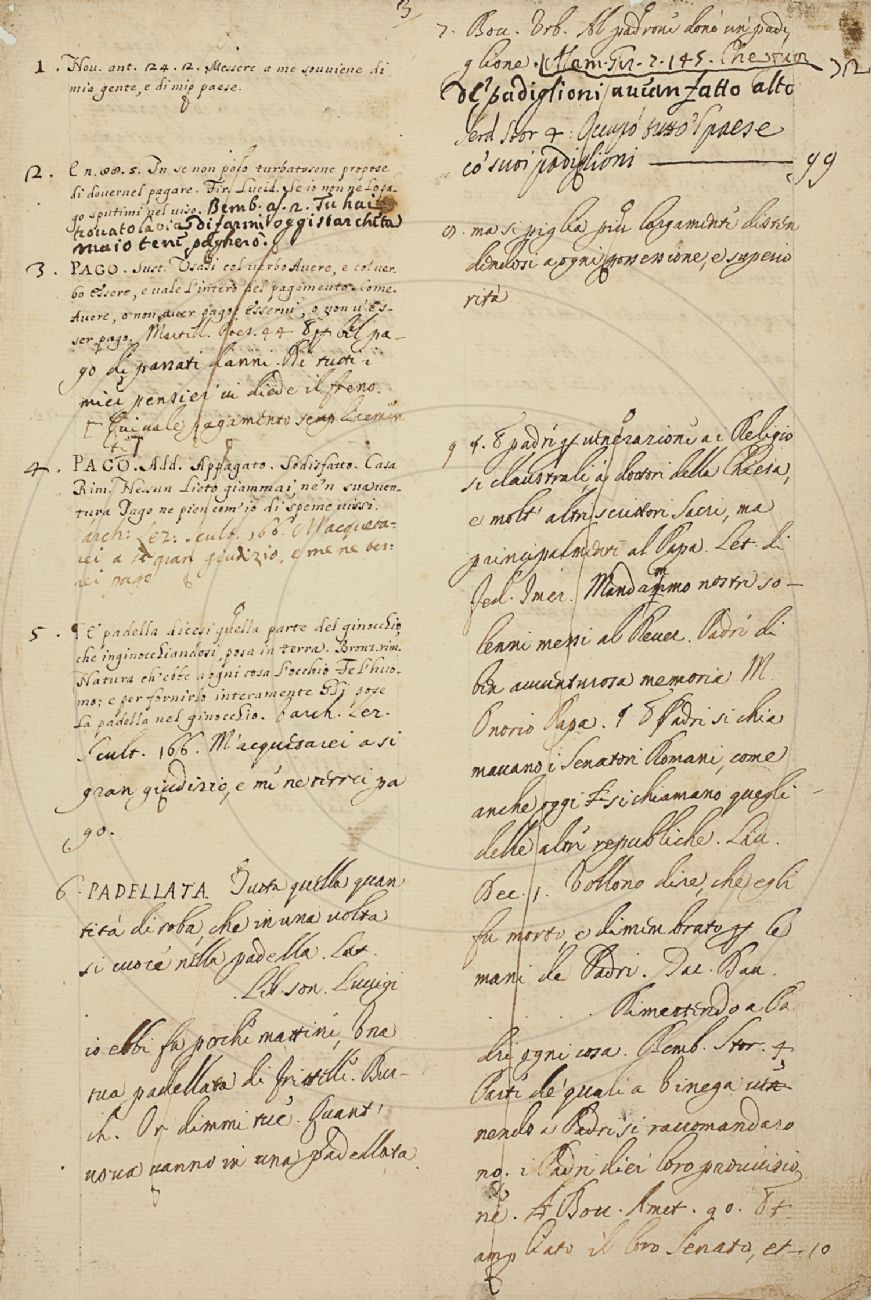 3
1. Nov. ant. 24. 2. Messere a me souviene di
mia gente, e di mio paese.
2. E n. 88. 5. In se non poso turbatosene propose
di dovernel pagare. Fir. Lucid. Se io non ne lo pa-
go sputimi nel viso. Bemb. As. 2. Tu hai
trovato la via di farmi oggi star cheta
ma io te ne pagherò.
3. PAGO. Sust. Usasi col verbo Avere, e col ver-
bo Essere, e vale l'intero del pagamento. Come
Avere, o non aver pago, Esservi, o non v'es-
ser pago. Martell. 44 bel pa-
go di passati danni. Ai tutti i
miei pensier' ui diede il freno.
Qui vale pagamento semplicemen
4. PAGO. Add. Appagato. Sodisfatto. Casa
Rim. Nessun lieto giammai, ne'n sua ven-
tura Pago ne pien com'io di speme vissi.
Barch: Lez: Scult. 166. M'acqueta-
rei a sì gran giudizio, e me ne ter-
rei pago
5. ¶ E padella dicesi quella parte del ginocchio,
che inginocchiandosi, posa in terra. Bronz. rim.
Natura ch'ebbe a ogni cosa l'occhio Fe l'huo-
mo; e per fornirlo interamente Gli pose
la padella nel ginocchio. Barch. Lez.
Scult. 166. M'acquetarei a si
gran giudizio, e me ne terrei pa
go.
6. PADELLATA. Tutta quella quan
tità di roba, che in una volta
si cuoce nella padella. Lat.
Lib. son. Luigi
io ebbi fa poche mattine, Una
tua padellata di frittelle. Bur-
ch. Or dimmi tue. Quant'
uova vanno in una padellata
7. Bou. Urb. Al padrone donò un padi
glione. Alam. Gir. 2. 145. Che tan
de' padiglioni avean fatto alto 72
Serd. Stor. 4. Occupò tutto 'l paese
co' suoi padiglioni 99
8. ma si piglia più largamente disten
dendosi a ogni possessione, e superio
rità
9 ¶. E padri per venerazione a i Religio
si claustrali, a dottori della Chiesa,
e molt' altri scrittori Sacri, ma
principalmente al Papa. Let. di
Fed. Imer. Mandammo nostri so-
lenni messi al Padri di
ben avventurosa memoria M.
Onorio Papa. ¶ E Padri si chia
mavano i Senatori Romani, come
anche oggi si chiamano quegli
delle altre republiche. Liu.
Dec. 1. Vollono dire, che egli
fu morto, e dimembrato per le
mani de Padri. Dav.
Rimettendo a Pa
dri ogni cosa. Bemb. Stor. 4
Parte de' quali a Vinegia ve-
nendo a Padri si raccomandaro
no. i Padri dieder loro provvisio
ne. Bou. Amet. 90. Et
ampliato il loro Senato, et 10